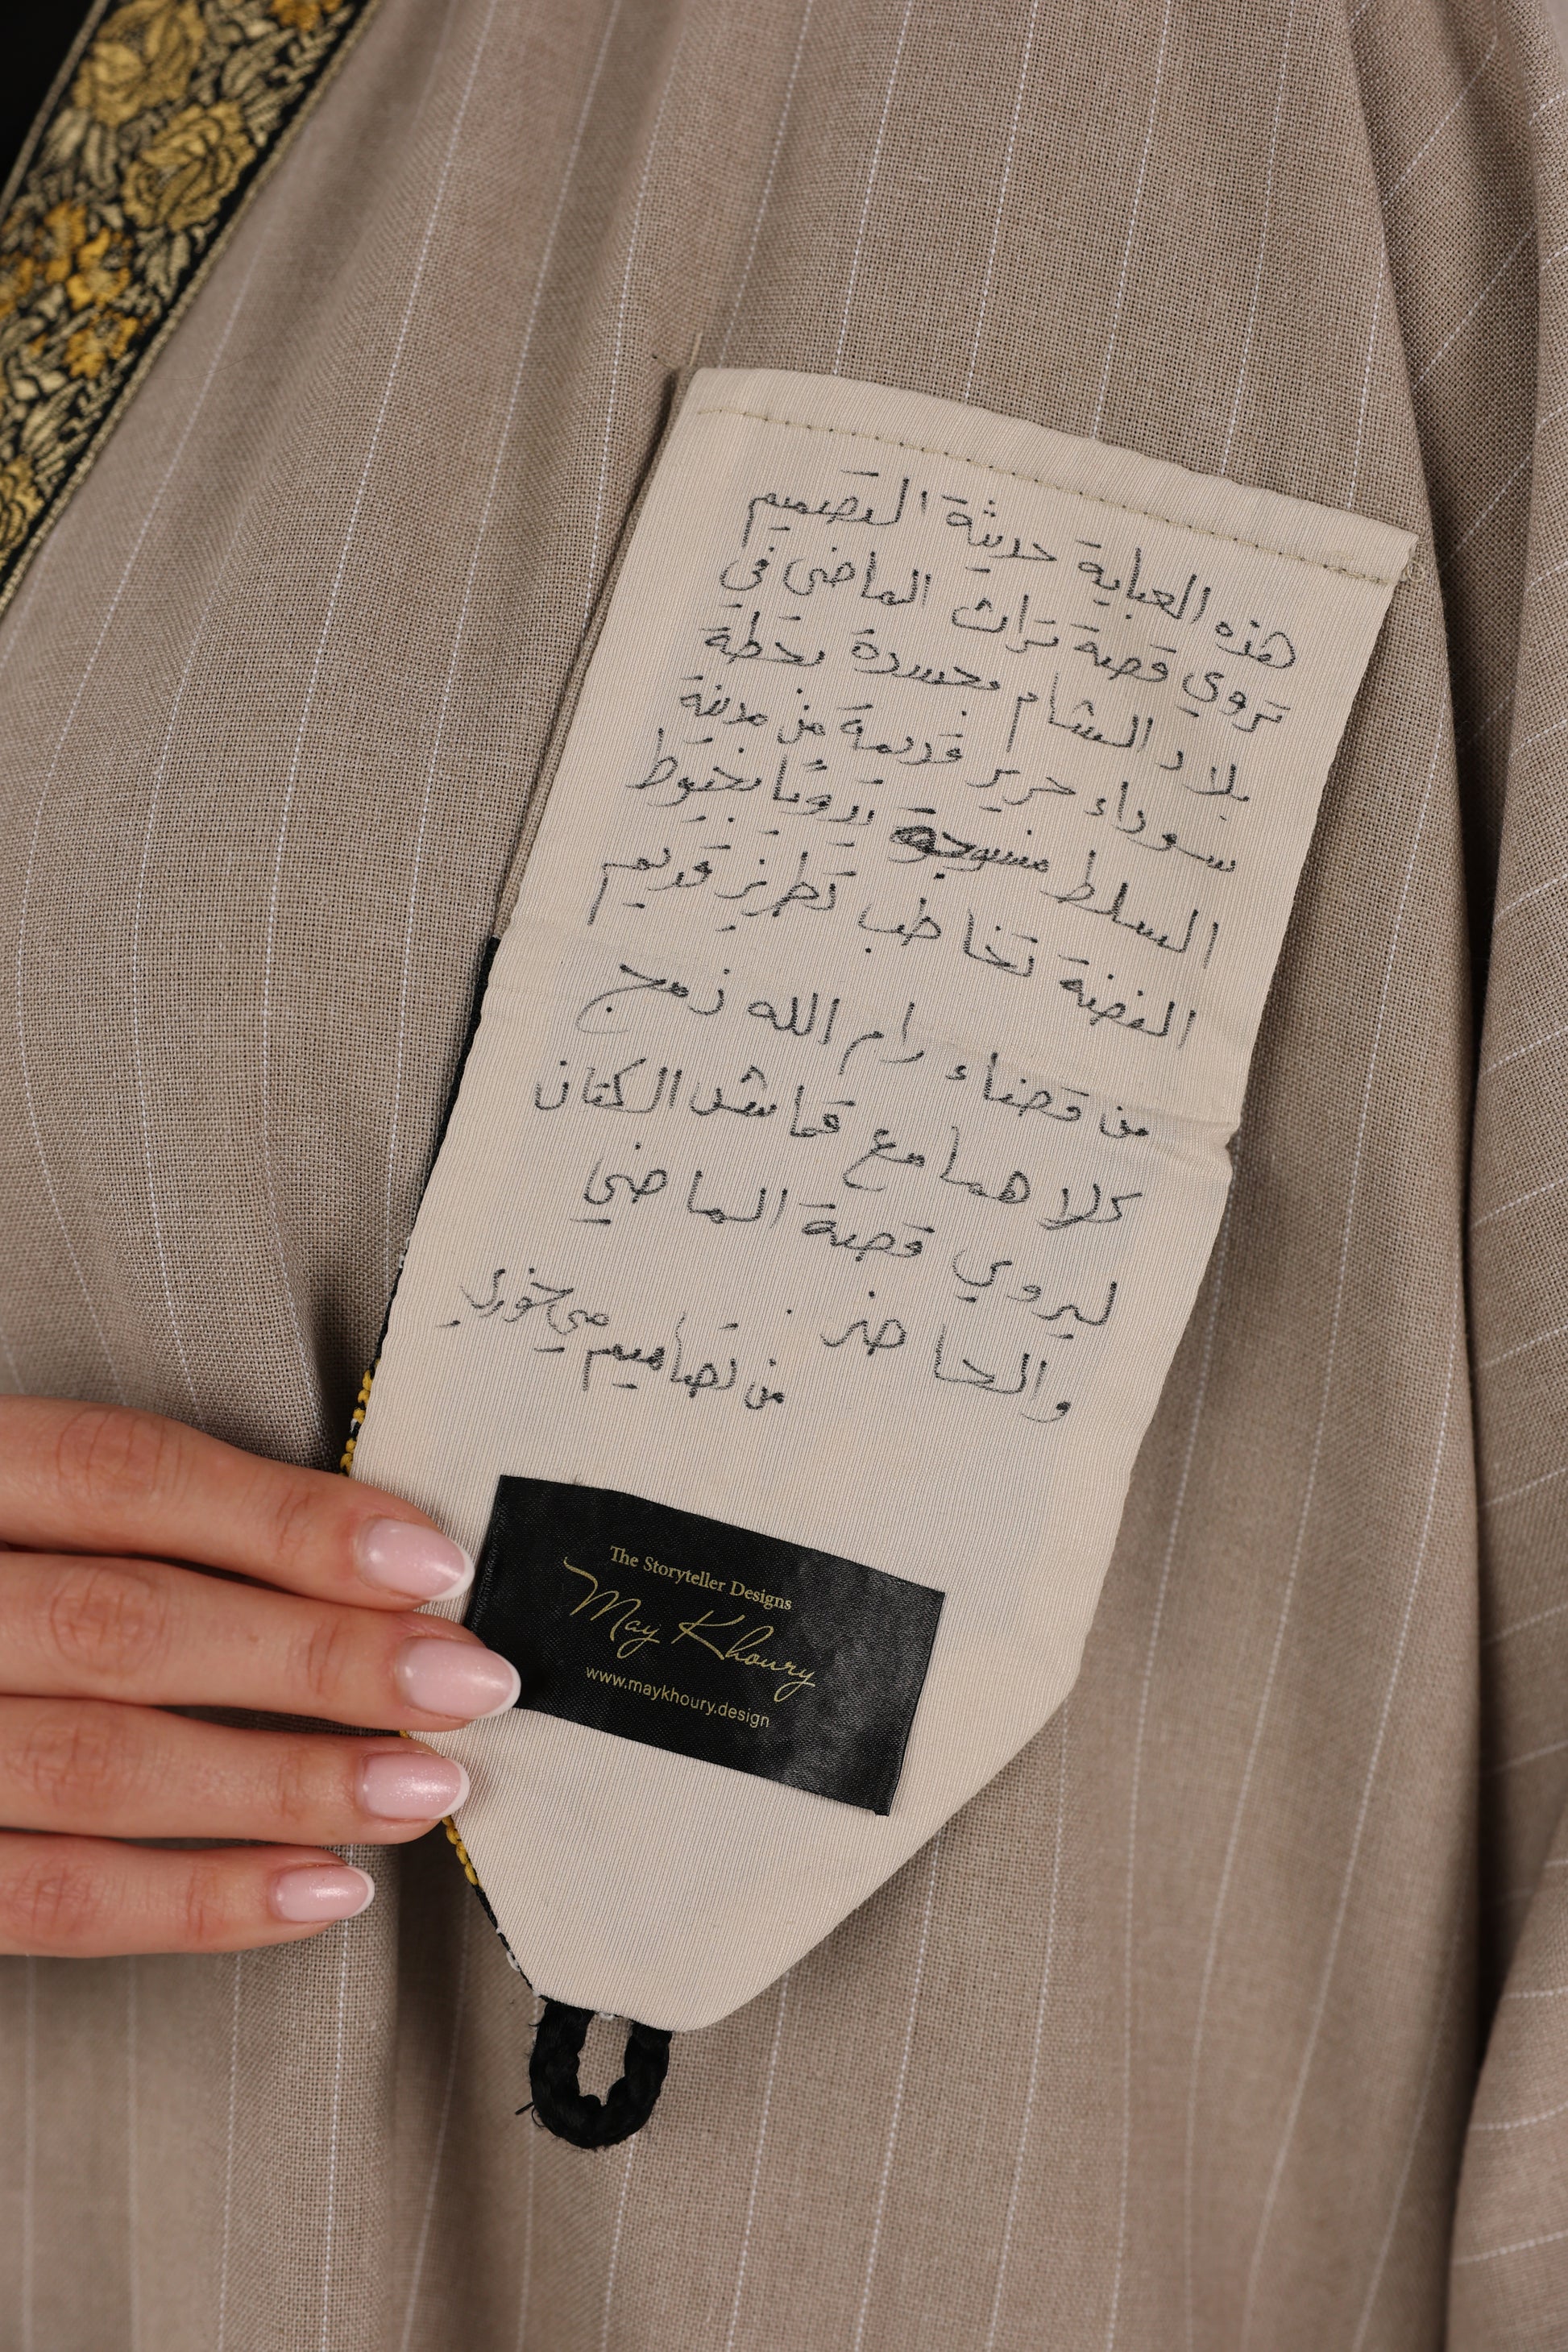 هذه العباية حديثة التصميم
تروي قصة تراث الماضي في
بلاد الشام مجسدة بحطة
سوداء حرير قديمة من مدينة
السلط منسوجة يدويًا بخيوط
الفضة تخاطب تطريز قديم
من قضاء رام الله نمزج
كلاهما مع قماش الكتان
ليروي قصة الماضي
والحاضر.
من تصاميم مي خوري
The Storyteller Designs
May Khoury
www.maykhoury.design